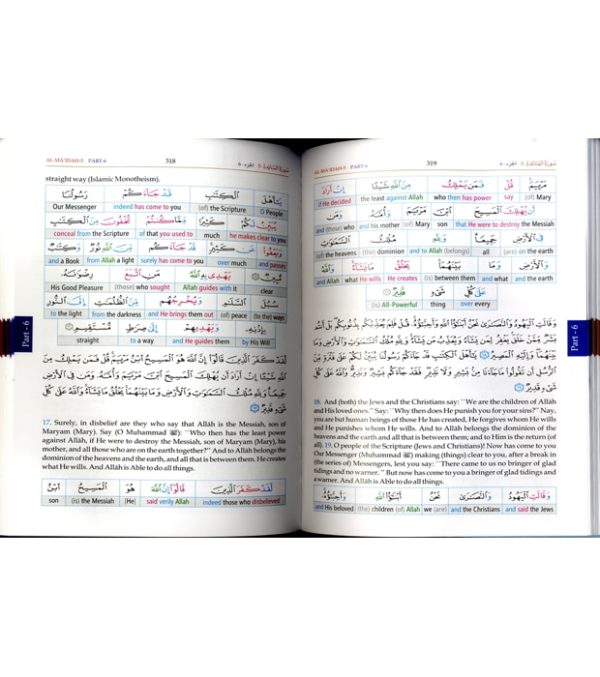 AL-MA'IDAH-5 PART-6 318 الجزء - ٦ سورة المائدة - ٥
straight way (Islamic Monotheism).
يَـٰٓأَهْلَ ٱلْكِتَـٰبِ قَدْ جَآءَكُمْ رَسُولُنَا
Our Messenger indeed has come to you (of) the Scripture O People
يُبَيِّنُ لَكُمْ كَثِيرًا مِّمَّا كُنتُمْ تُخْفُونَ مِنَ ٱلْكِتَـٰبِ
conceal from the Scripture of that you used to much he makes clear to you
وَيَعْفُوا۟ عَن كَثِيرٍ قَدْ جَآءَكُم مِّنَ ٱللَّهِ نُورٌ وَكِتَـٰبٌ
and a Book from Allah a light surely has come to you over much and passes
مُّبِينٌ يَهْدِى بِهِ ٱللَّهُ مَنِ ٱتَّبَعَ رِضْوَٰنَهُۥ
His Good Pleasure (those) who sought Allah guides with it clear
سُبُلَ ٱلسَّلَـٰمِ وَيُخْرِجُهُم مِّنَ ٱلظُّلُمَـٰتِ إِلَى ٱلنُّورِ
to the light from the darkness and He brings them out (of) peace (to the) ways
بِإِذْنِهِۦ وَيَهْدِيهِمْ إِلَىٰ صِرَٰطٍ مُّسْتَقِيمٍ
straight to a way and He guides them by His Will
لَّقَدْ كَفَرَ ٱلَّذِينَ قَالُوٓا۟ إِنَّ ٱللَّهَ هُوَ ٱلْمَسِيحُ ٱبْنُ مَرْيَمَ قُلْ فَمَن يَمْلِكُ مِنَ
ٱللَّهِ شَيْـًٔا إِنْ أَرَادَ أَن يُهْلِكَ ٱلْمَسِيحَ ٱبْنَ مَرْيَمَ وَأُمَّهُۥ وَمَن فِى ٱلْأَرْضِ
جَمِيعًا وَلِلَّهِ مُلْكُ ٱلسَّمَـٰوَٰتِ وَٱلْأَرْضِ وَمَا بَيْنَهُمَا يَخْلُقُ مَا يَشَآءُ وَٱللَّهُ عَلَىٰ كُلِّ
شَىْءٍ قَدِيرٌ
17. Surely, in disbelief are they who say that Allah is the Messiah, son of
Maryam (Mary). Say (O Muhammad ﷺ): "Who then has the least power
against Allah, if He were to destroy the Messiah, son of Maryam (Mary), his
mother, and all those who are on the earth together?" And to Allah belongs the
dominion of the heavens and the earth, and all that is between them. He creates
what He wills. And Allah is Able to do all things.
لَّقَدْ كَفَرَ ٱلَّذِينَ قَالُوٓا۟ إِنَّ ٱللَّهَ هُوَ ٱلْمَسِيحُ ٱبْنُ
son (is) the Messiah [He] said verily Allah indeed those who disbelieved
Part - 6
AL-MA'IDAH-5 PART-6 319 الجزء - ٦ سورة المائدة - ٥
مَرْيَمَ قُلْ فَمَن يَمْلِكُ مِنَ ٱللَّهِ شَيْـًٔا إِنْ أَرَادَ
if He decided the least against Allah who then has power say (of) Mary
أَن يُهْلِكَ ٱلْمَسِيحَ ٱبْنَ مَرْيَمَ وَأُمَّهُۥ وَمَن
and (those) who and his mother (of) Mary son that He were to destroy the Messiah
فِى ٱلْأَرْضِ جَمِيعًا وَلِلَّهِ مُلْكُ ٱلسَّمَـٰوَٰتِ
(of) the heavens (the) dominion and to Allah (belongs) all (are) on the earth
وَٱلْأَرْضِ وَمَا بَيْنَهُمَا يَخْلُقُ مَا يَشَآءُ وَٱللَّهُ
and Allah what He wills He creates (is) between them and what and the earth
عَلَىٰ كُلِّ شَىْءٍ قَدِيرٌ
(is) All-Powerful thing over every
وَقَالَتِ ٱلْيَهُودُ وَٱلنَّصَـٰرَىٰ نَحْنُ أَبْنَـٰٓؤُا۟ ٱللَّهِ وَأَحِبَّـٰٓؤُهُۥ قُلْ فَلِمَ يُعَذِّبُكُم بِذُنُوبِكُم بَلْ
أَنتُم بَشَرٌ مِّمَّنْ خَلَقَ يَغْفِرُ لِمَن يَشَآءُ وَيُعَذِّبُ مَن يَشَآءُ وَلِلَّهِ مُلْكُ ٱلسَّمَـٰوَٰتِ وَٱلْأَرْضِ وَمَا
بَيْنَهُمَا وَإِلَيْهِ ٱلْمَصِيرُ يَـٰٓأَهْلَ ٱلْكِتَـٰبِ قَدْ جَآءَكُمْ رَسُولُنَا يُبَيِّنُ لَكُمْ عَلَىٰ فَتْرَةٍ مِّنَ
ٱلرُّسُلِ أَن تَقُولُوا۟ مَا جَآءَنَا مِنۢ بَشِيرٍ وَلَا نَذِيرٍ فَقَدْ جَآءَكُم بَشِيرٌ وَنَذِيرٌ وَٱللَّهُ عَلَىٰ كُلِّ
شَىْءٍ قَدِيرٌ
18. And (both) the Jews and the Christians say: "We are the children of Allah
and His loved ones." Say: "Why then does He punish you for your sins?" Nay,
you are but human beings of those He has created, He forgives whom He wills
and He punishes whom He wills. And to Allah belongs the dominion of the
heavens and the earth and all that is between them; and to Him is the return (of
all). 19. O people of the Scripture (Jews and Christians)! Now has come to you
Our Messenger (Muhammad ﷺ) making (things) clear to you, after a break in
(the series of) Messengers, lest you say: "There came to us no bringer of glad
tidings and no warner." But now has come to you a bringer of glad tidings and
a warner. And Allah is Able to do all things.
وَقَالَتِ ٱلْيَهُودُ وَٱلنَّصَـٰرَىٰ نَحْنُ أَبْنَـٰٓؤُا۟ ٱللَّهِ وَأَحِبَّـٰٓؤُهُۥ
and His beloved (the) children (of) Allah we (are) and the Christians and said the Jews
Part - 6